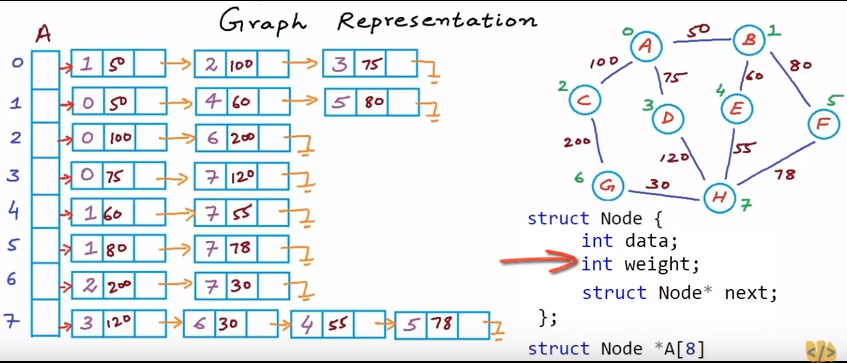 Graph Representation
A
0 1 50 2 100 3 75
1 0 50 4 60 5 80
2 0 100 6 200
3 0 75 7 120
4 1 60 7 55
5 1 80 7 78
6 2 200 7 30
7 3 120 6 30 4 55 5 78
0 A 50 B 1
100 75 60 80
2 C 3 D 4 E 5 F
200 120 55 78
6 G 30 H 7
struct Node {
int data;
int weight;
struct Node* next;
};
struct Node *A[8]
</>